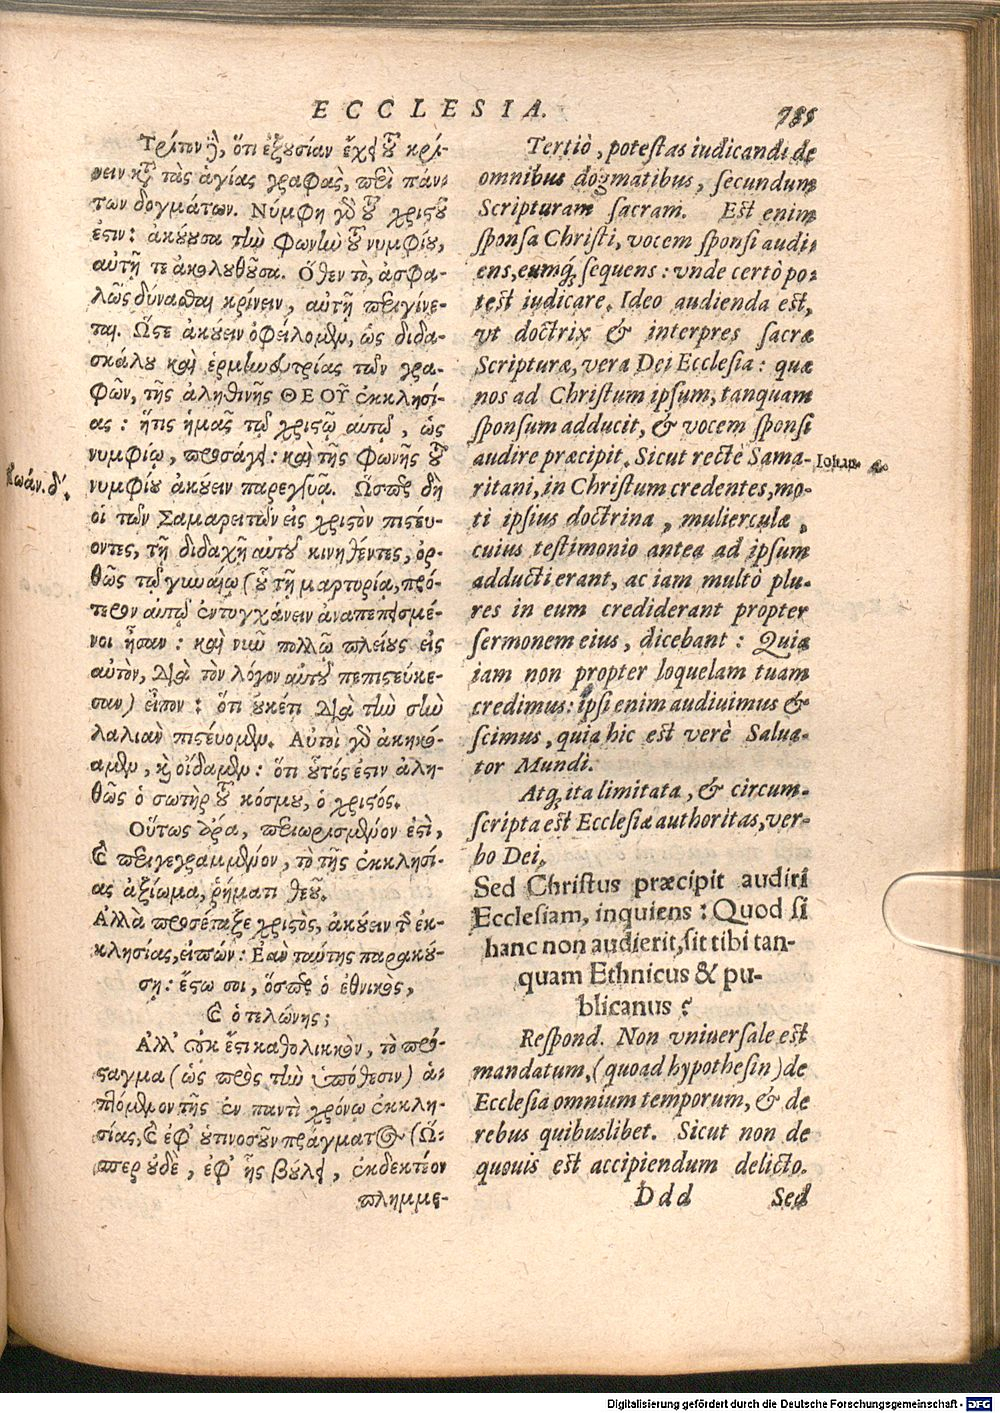 ECCLESIA. 785
Τρίτον δὲ, ὅτι ἐξουσίαν ἔχει τοῦ κρί-
νειν κατὰ τὰς ἁγίας γραφὰς, περὶ πάν-
των δογμάτων. Νύμφη γὰρ τοῦ χριστοῦ
ἐστιν: ἀκούουσα τὴν φωνὴν τοῦ νυμφίου,
αὐτῇ τε ἀκολουθοῦσα. Ὅθεν τὸ, ἀσφα-
λῶς δύνασθαι κρίνειν, αὐτῇ περιγίνε-
ται. Ὥστε ἀκούειν ὀφείλομεν, ὡς διδα-
σκάλου καὶ ἑρμηνευτρίας τῶν γρα-
φῶν, τῆς ἀληθινῆς ΘΕΟΥ͂ ἐκκλησί-
ας: ἥτις ἡμᾶς τῷ χριστῷ αὐτῷ, ὡς
νυμφίῳ, προσάγει: καὶ τῆς φωνῆς τοῦ
Ἰωάν. δ΄.
νυμφίου ἀκούειν παρεγγυᾷ. Ὥσπερ δὴ
οἱ τῶν Σαμαρειτῶν εἰς χριστὸν πιστεύ-
οντες, τῇ διδαχῇ αὐτοῦ κινηθέντες, ὀρ-
θῶς τῷ γυναίῳ (οὗ τῇ μαρτυρίᾳ, πρό-
τερον αὐτῷ ἐντυγχάνειν ἀναπεπεισμέ-
νοι ἦσαν: καὶ νῦν πολλῷ πλείους εἰς
αὐτὸν, διὰ τὸν λόγον αὐτοῦ πεπιστεύκε-
σαν) εἶπον: ὅτι οὐκέτι διὰ τὴν σὴν
λαλιὰν πιστεύομεν. Αὐτοὶ γὰρ ἀκηκό-
αμεν, καὶ οἴδαμεν: ὅτι οὗτός ἐστιν ἀλη-
θῶς ὁ σωτὴρ τοῦ κόσμου, ὁ χριστός.
Οὕτως ἄρα, περιωρισμένον ἐστὶ,
καὶ περιγεγραμμένον, τὸ τῆς ἐκκλησί-
ας ἀξίωμα, ῥήματι θεοῦ.
Ἀλλὰ προσέταξε χριστὸς, ἀκούειν τῆς ἐκ-
κλησίας, εἰπών: Ἐὰν ταύτης παρακού-
σῃ: ἔστω σοι, ὥσπερ ὁ ἐθνικὸς,
καὶ ὁ τελώνης;
Ἀλλ' οὐκ ἔστι καθολικὸν, τὸ πρό-
σταγμα (ὡς πρὸς τὴν ὑπόθεσιν) ἁ-
πλόμενον τῆς ἐν παντὶ χρόνῳ ἐκκλη-
σίας, καὶ ἐφ' ὑτινοσοῦν πράγματος (Ὥ-
σπερ οὐδὲ, ἐφ' ἧς βούλει, ἐκδεκτέον
πλημμε-
Tertiò, potestas iudicandi de
omnibus dogmatibus, secundum
Scripturam sacram. Est enim
sponsa Christi, vocem sponsi audi-
ens, eumq́, sequens: vnde certò po-
test iudicare. Ideo audienda est,
vt doctrix & interpres sacræ
Scripturæ, vera Dei Ecclesia: quæ
nos ad Christum ipsum, tanquam
sponsum adducit, & vocem sponsi
audire præcipit. Sicut rectè Sama-
Iohan. 4.
ritani, in Christum credentes, mo-
ti ipsius doctrina, mulierculæ,
cuius testimonio antea ad ipsum
adducti erant, ac iam multò plu-
res in eum crediderant propter
sermonem eius, dicebant: Quia
iam non propter loquelam tuam
credimus: ipsi enim audiuimus &
scimus, quia hic est verè Salua-
tor Mundi.
Atq́, ita limitata, & circum-
scripta est Ecclesiæ authoritas, ver-
bo Dei.
Sed Christus præcipit audiri
Ecclesiam, inquiens: Quod si
hanc non audierit, sit tibi tan-
quam Ethnicus & pu-
blicanus?
Respond. Non vniuersale est
mandatum, (quoad hypothesin) de
Ecclesia omnium temporum, & de
rebus quibuslibet. Sicut non de
quouis est accipiendum delicto.
Ddd Sed
Digitalisierung gefördert durch die Deutsche Forschungsgemeinschaft - DFG